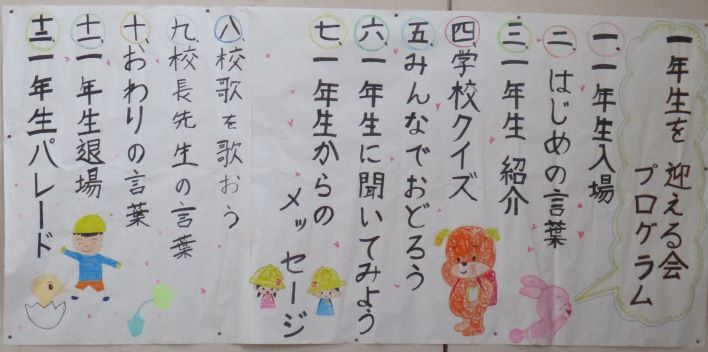 一年生を 迎える会
プログラム
一、一年生入場
二、はじめの言葉
三、一年生 紹介
四、学校クイズ
五、みんなでおどろう
六、一年生に聞いてみよう
七、一年生からの
メッセージ
八、校歌を歌おう
九、校長先生の言葉
十、おわりの言葉
十一、一年生退場
十二、一年生パレード